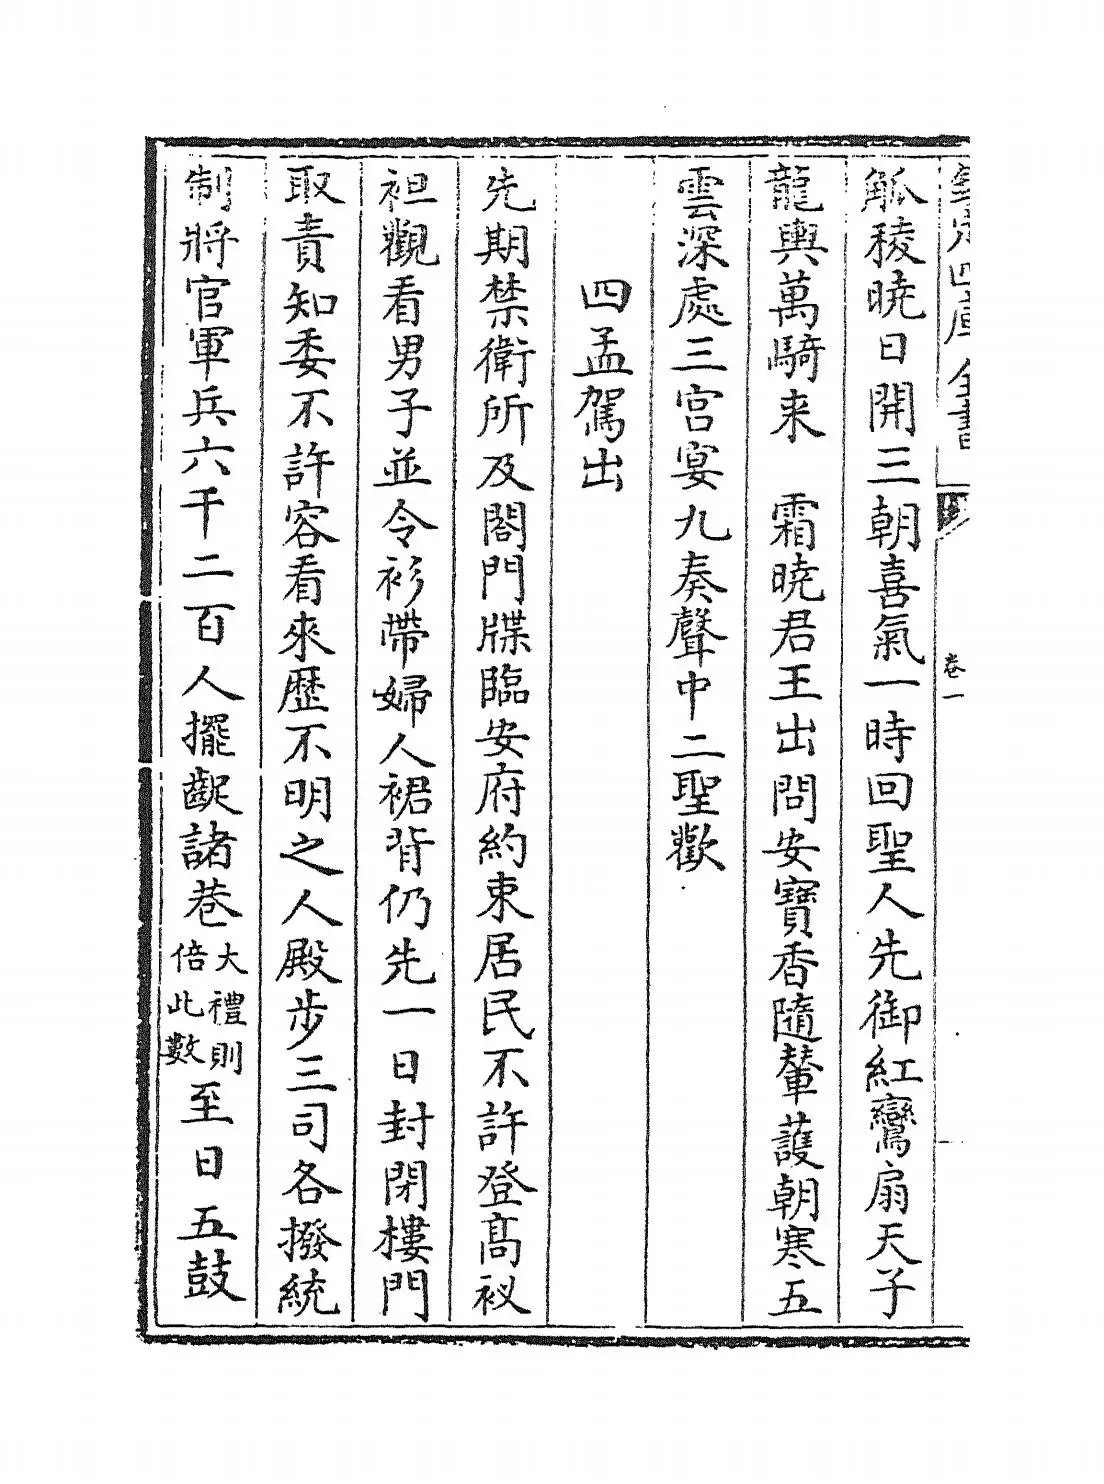 欽定四庫全書
卷一
觚稜曉日開三朝喜氣一時回聖人先御紅鸞扇天子
龍輿萬騎来 霜曉君王出問安寶香隨輦護朝寒五
雲深處三宮宴九奏聲中二聖歡
四孟駕出
先期禁衛所及閤門牒臨安府約束居民不許登髙衩
袒觀看男子並令衫帶婦人裙背仍先一日封閉樓門
取責知委不許容看來歴不明之人殿步三司各撥統
制將官軍兵六千二百人擺齪諸巷大禮則倍此數至日五鼓